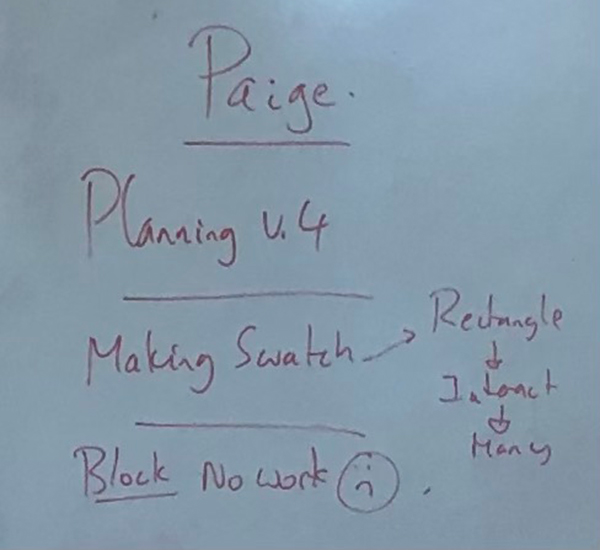 Paige.
Planning v.4
Making Swatch → Rectangle
↓
Interact
↓
Many
Block No work ☹.